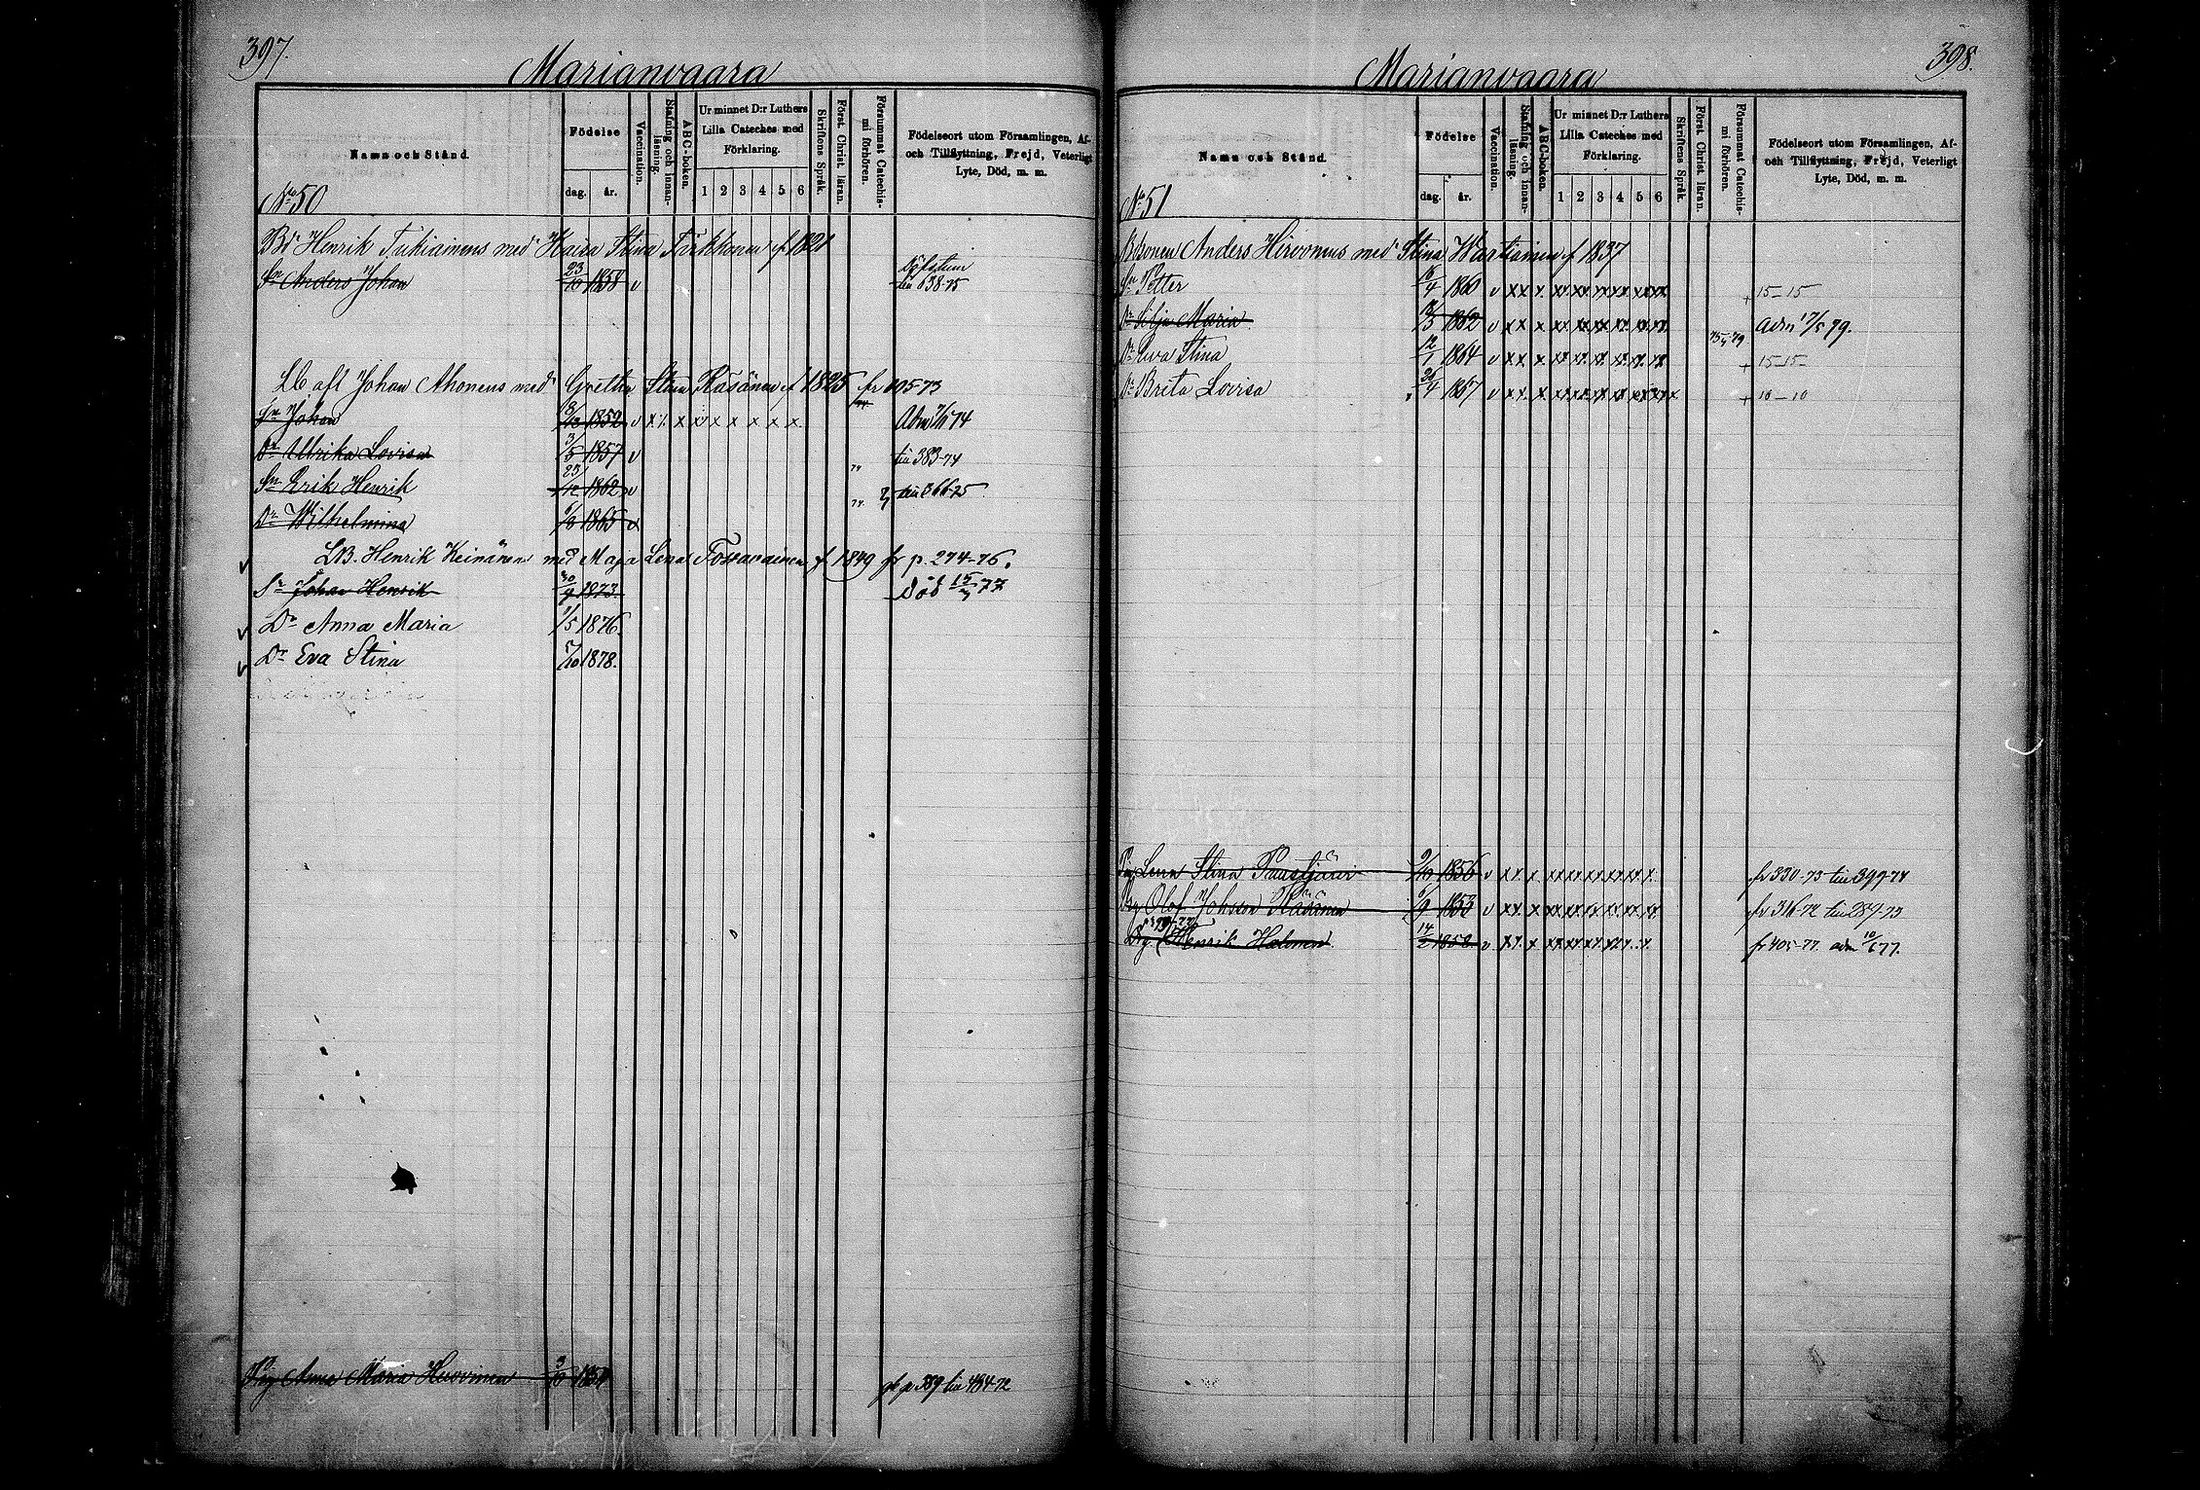 397.
Marianvaara
Namn och Stånd.
Födelse
dag. år.
Vaccination.
Stafning och innanläsning.
ABC-boken.
Ur minnet D:r Luthers Lilla Cateches med Förklaring.
1 2 3 4 5 6
Skriftens Språk.
Först. Christ. läran.
Försummat Catechismi förhören.
Födelseort utom Församlingen, Af- och Tillflyttning, Frejd, Veterligt Lyte, Död, m. m.
No 50
Bd Henrik Tukiainens med Kaisa Stina Törkkonen f 1821
Sn Anders Johan 23/10 1858 v till 638-75
Lb afl Johan Ahonens med Gretha Stina Räsänen f 1825 fr 105-73
Sn Johan 1852 v x x x x x x x x x Adm 74
Dr Ulrika Lovisa 3/5 1857 v till 383-74
Sn Erik Henrik 25/12 1862 v till 366-75
Dr Wilhelmina 6/8 1865 v
LB. Henrik Keinänen med Maja Lena f 1849 fr p. 274-76.
Sn Johan Henrik 20/9 1873. Död 15/ 77
Dr Anna Maria 1/5 1876.
Dr Eva Stina 7/10 1878.
Pig Anna Maria Hirvonen 3/10 p 389 till 484-72
398.
Marianvaara
Namn och Stånd.
Födelse
dag. år.
Vaccination.
Stafning och innanläsning.
ABC-boken.
Ur minnet D:r Luthers Lilla Cateches med Förklaring.
1 2 3 4 5 6
Skriftens Språk.
Först. Christ. läran.
Försummat Catechismi förhören.
Födelseort utom Församlingen, Af- och Tillflyttning, Frejd, Veterligt Lyte, Död, m. m.
No 51
Bdsonen Anders Hirvonens med Stina Wartiainen f 1837
Sn Petter /4 1860 v xx x xx xx xx xx xx xx + 15-15
Dr Silja Maria 1862 v xx x xx xx xx xx xx 75, 79 Adm 17/5 79.
Dr Ewa Stina 12/1 1864 v xx x xx xx xx xx xx xx + 15-15
Dr Brita Lovisa /4 1867 v xx x xx xx xx xx xx xx x + 10-10
Pig Lena Stina 9/10 1856 v xx x xx xx xx xx xx x fr 330-73 till 397-74
Drg Olof Johsson Räsänen 6/9 1853 v xx x xx xx xx xx xx xx fr 316-72 till 287-73
Drg Henrik Halonen 14/2 1858 v xx x xx xx xx xx x x fr 405-77. adm 10/6 77.